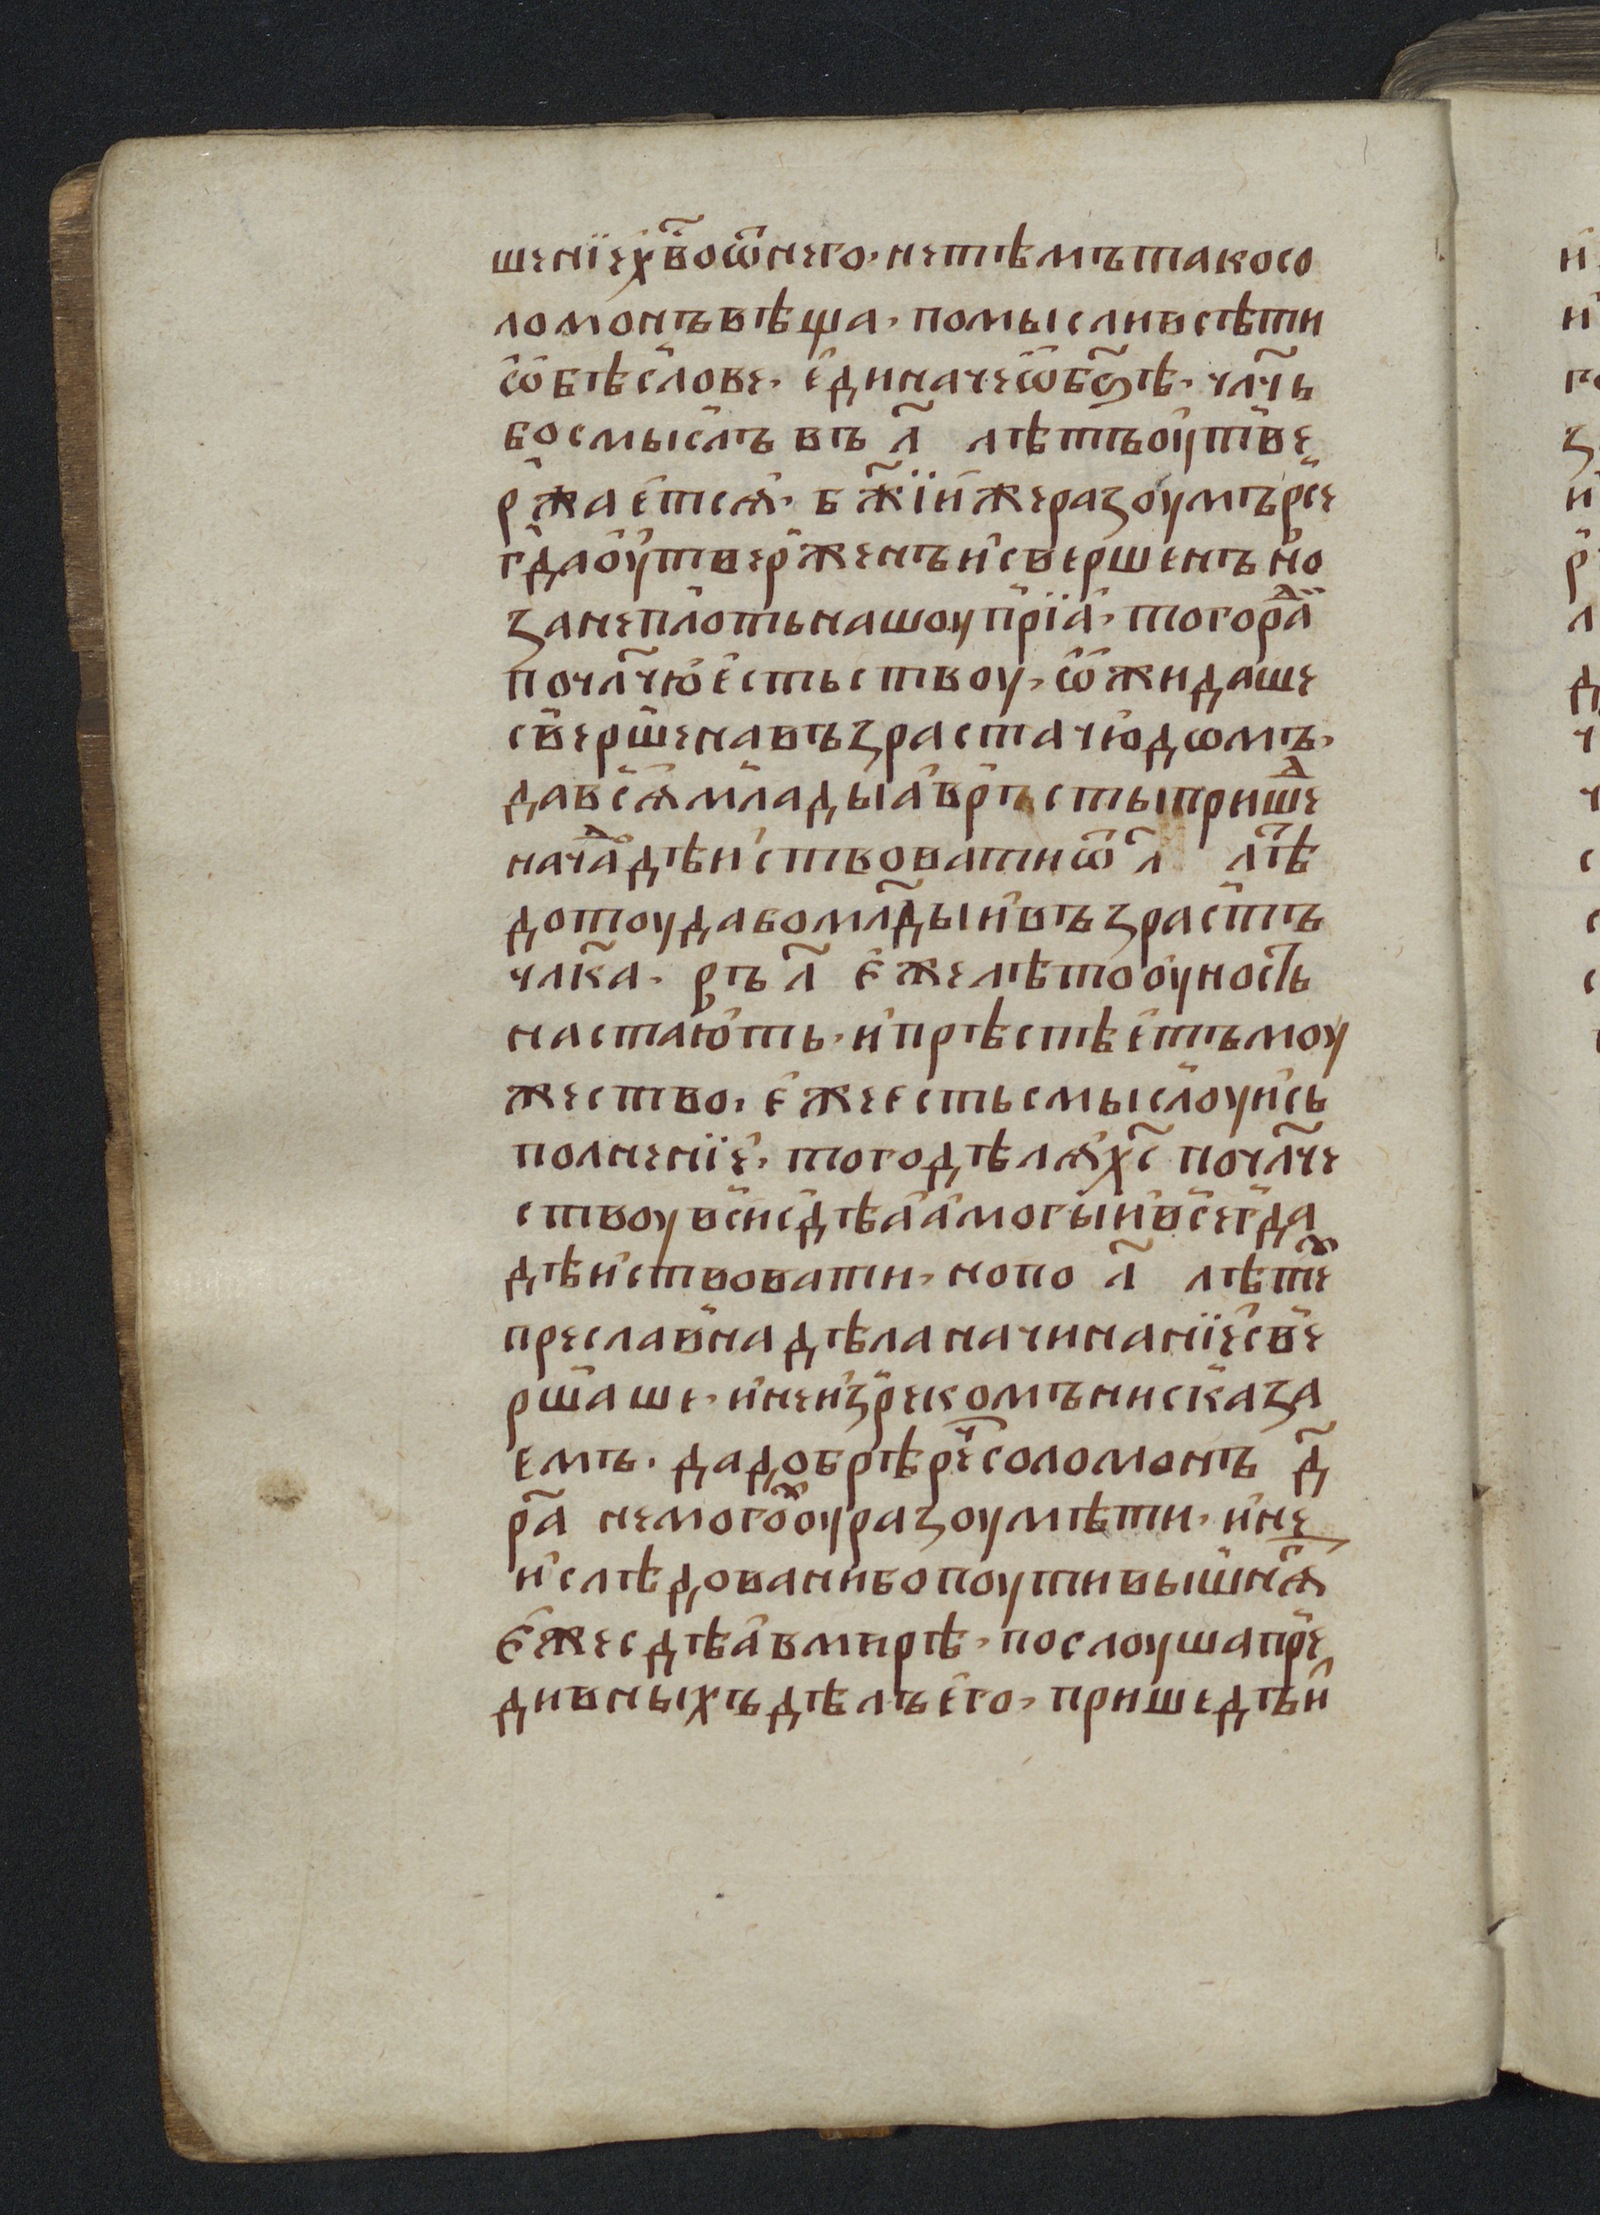 шенїех҃в̑оѿнего· нетѣмътакосо
ломонъвѣща· помысливсѣти
ѽбѣсловє· є҆диначеѽбз҃ѣ· члч҃ь
босмыслъ въ л҃ лѣтъоутвє
ржаетсѧ· бж҃їи жеразоумъвсє
гдаоутверженъ исвершенъ но
занеплотьнашоу прїа· тогорад҃и
почлч҃ю естьствоу· ѡжидаше
свершенавъзрастачюдѡмъ·
давсѧмладыавръстыпришеⷣ
начаⷧдѣиствоватиѿ л҃ лт҃ѣ
дотоудабомлд҃ыивъзрастъ
члк҃а· въ л҃ єжелѣтооуность
настають· ипрѣстѣетъмоу
жество· єжеестьсмыслоуись
полненїе· тогодѣлѧхс҃ почлч҃е
ствоувсисдѣлаамогыивсегда
дѣиствовати· нопо л҃ лѣтеⷯ
преславнадѣланачинанїесвє
ршаше· инеизрекомънисказа
емъ· дадобрѣреⷱ҇соломонъ д҃
ра҃ немогоⷯоуразоумѣти· инє
ислѣдованибопоутивышнѧ
єжесдѣлавмирѣ· послоушапре
дивныхъдѣлъего· пришедъи